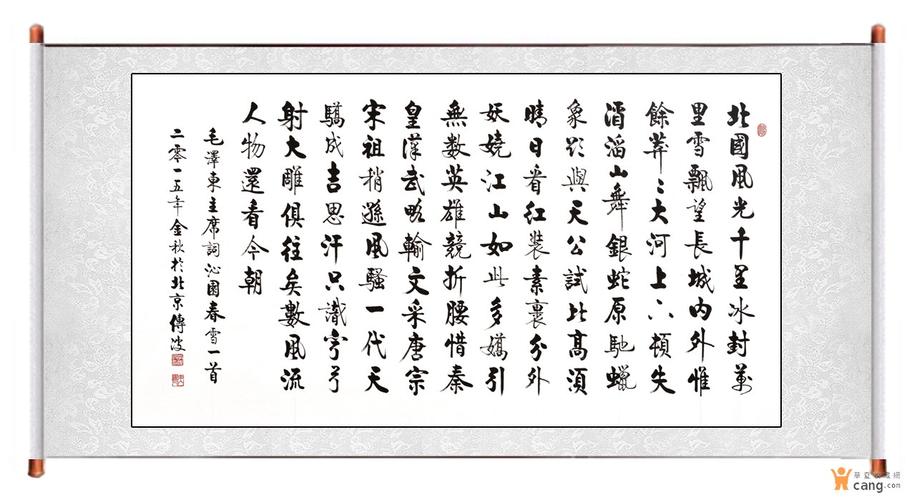 北國風光千里冰封萬
里雪飄望長城內外惟
餘莽〻大河上下頓失
滔滔山舞銀蛇原馳蠟
象欲與天公試比高須
晴日看紅裝素裹分外
妖嬈江山如此多嬌引
無數英雄競折腰惜秦
皇漢武略輸文采唐宗
宋祖稍遜風騷一代天
驕成吉思汗只識弯弓
射大雕俱往矣數風流
人物還看今朝
毛澤東主席詞沁園春雪一首
二零一五年金秋於北京傳波
華夏收藏網
cang.com